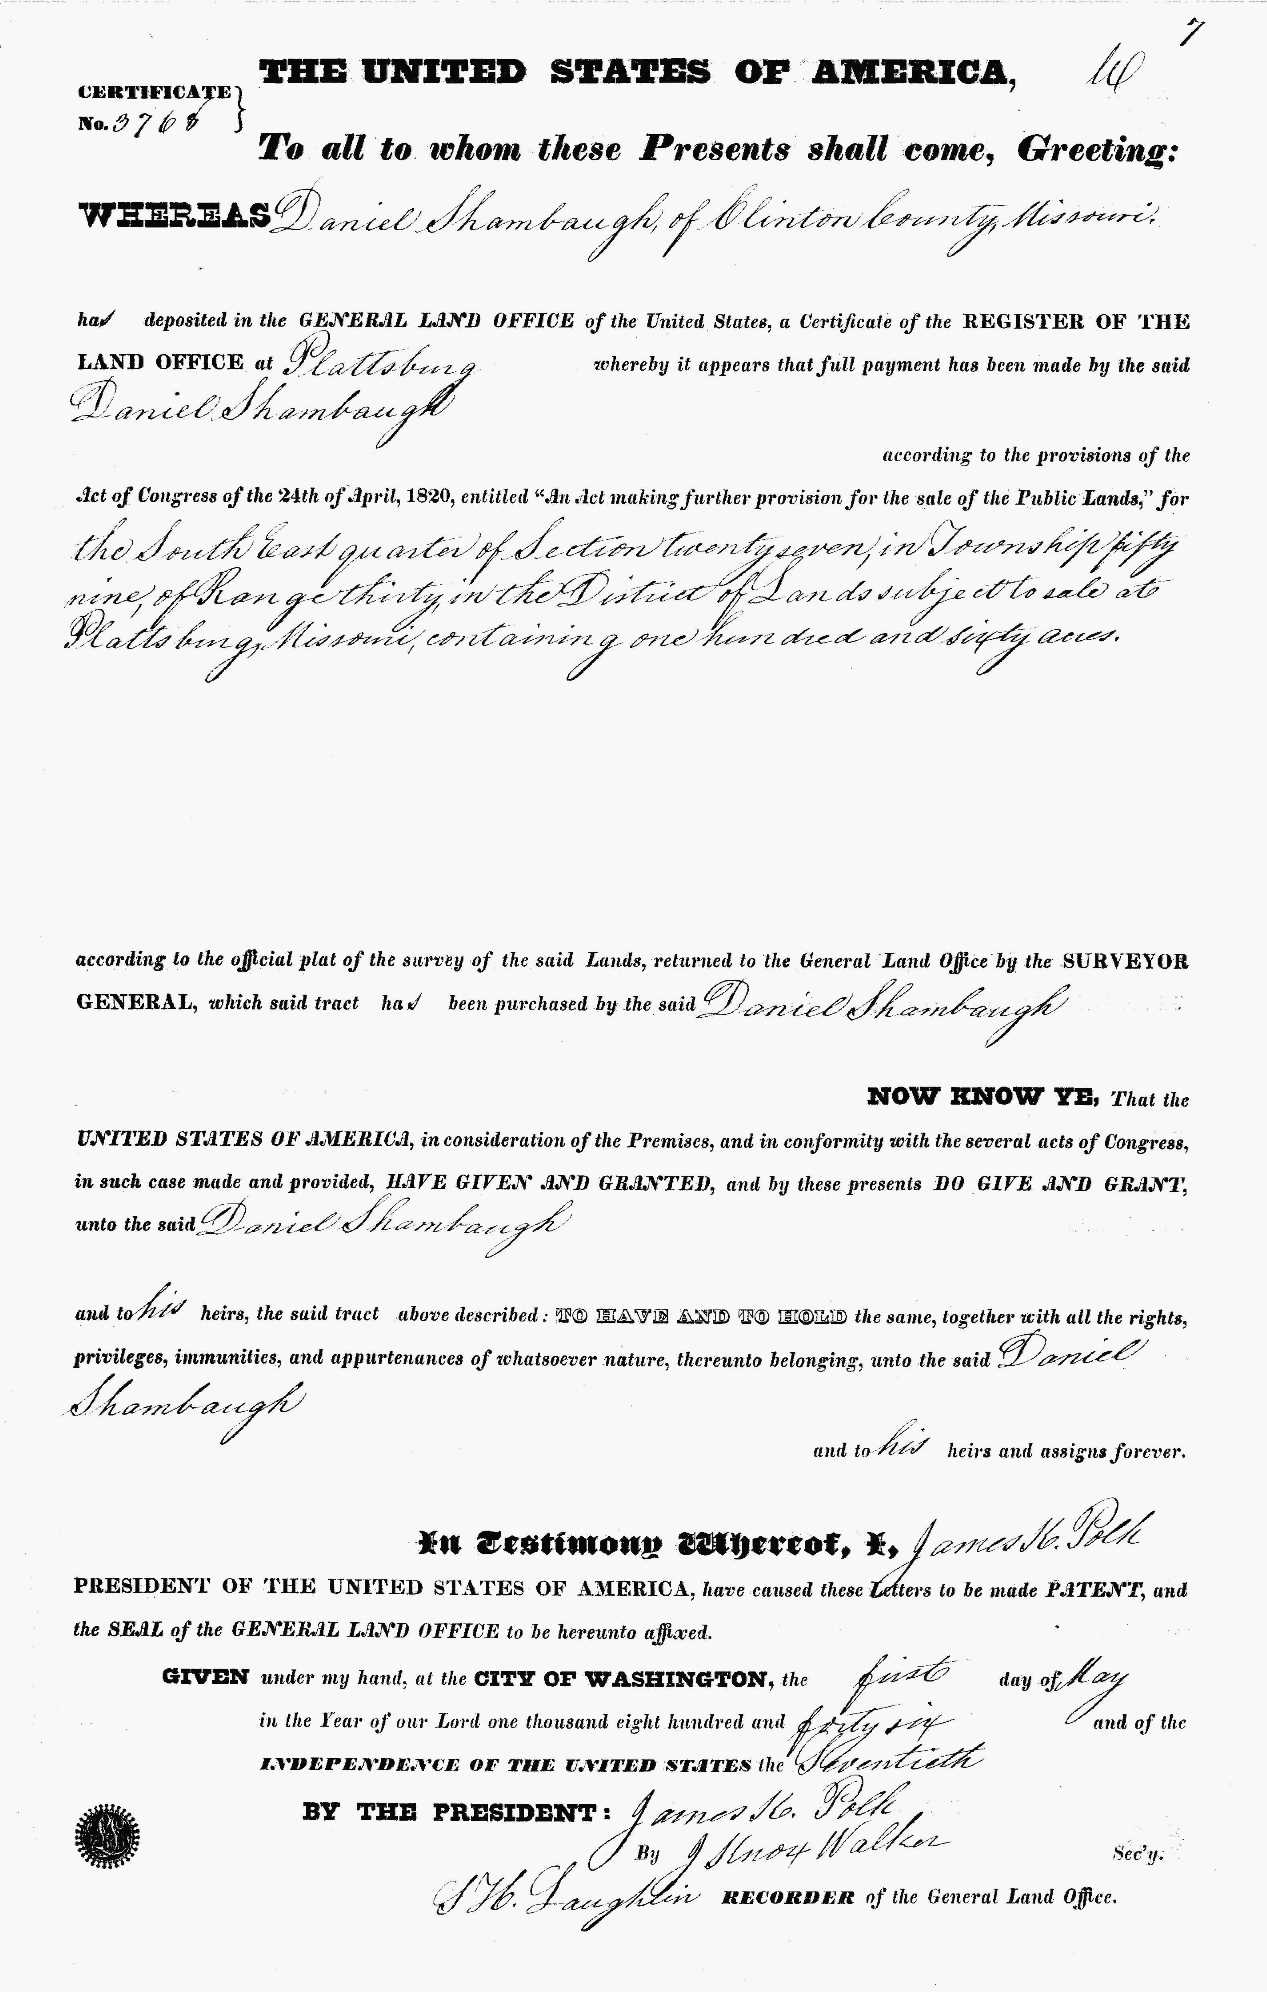 7
THE UNITED STATES OF AMERICA,
CERTIFICATE
No. 3768
To all to whom these Presents shall come, Greeting:
WHEREAS Daniel Shambaugh, of Clinton County, Missouri.
has deposited in the GENERAL LAND OFFICE of the United States, a Certificate of the REGISTER OF THE
LAND OFFICE at Plattsburg whereby it appears that full payment has been made by the said
Daniel Shambaugh
according to the provisions of the
Act of Congress of the 24th of April, 1820, entitled "An Act making further provision for the sale of the Public Lands," for
the South East quarter of Section twenty seven, in Township fifty
nine, of Range thirty, in the District of Lands subject to sale at
Plattsburg, Missouri, containing one hundred and sixty acres.
according to the official plat of the survey of the said Lands, returned to the General Land Office by the SURVEYOR
GENERAL, which said tract has been purchased by the said Daniel Shambaugh
NOW KNOW YE, That the
UNITED STATES OF AMERICA, in consideration of the Premises, and in conformity with the several acts of Congress,
in such case made and provided, HAVE GIVEN AND GRANTED, and by these presents DO GIVE AND GRANT,
unto the said Daniel Shambaugh
and to his heirs, the said tract above described: TO HAVE AND TO HOLD the same, together with all the rights,
privileges, immunities, and appurtenances of whatsoever nature, thereunto belonging, unto the said Daniel
Shambaugh
and to his heirs and assigns forever.
In Testimony Whereof, I, James K. Polk
PRESIDENT OF THE UNITED STATES OF AMERICA, have caused these Letters to be made PATENT, and
the SEAL of the GENERAL LAND OFFICE to be hereunto affixed.
GIVEN under my hand, at the CITY OF WASHINGTON, the first day of May
in the Year of our Lord one thousand eight hundred and forty six and of the
INDEPENDENCE OF THE UNITED STATES the Seventieth
BY THE PRESIDENT: James K. Polk
By J Knox Walker Sec'y.
S H. Laughlin RECORDER of the General Land Office.